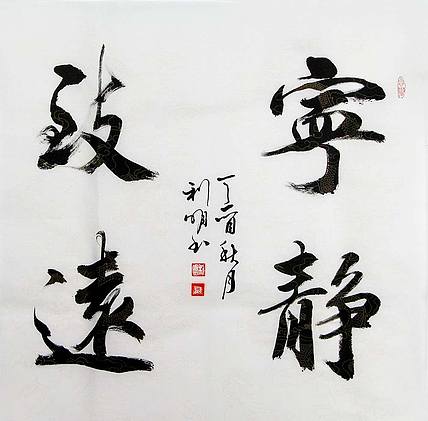 寧靜
致遠
丁酉秋月
利明书